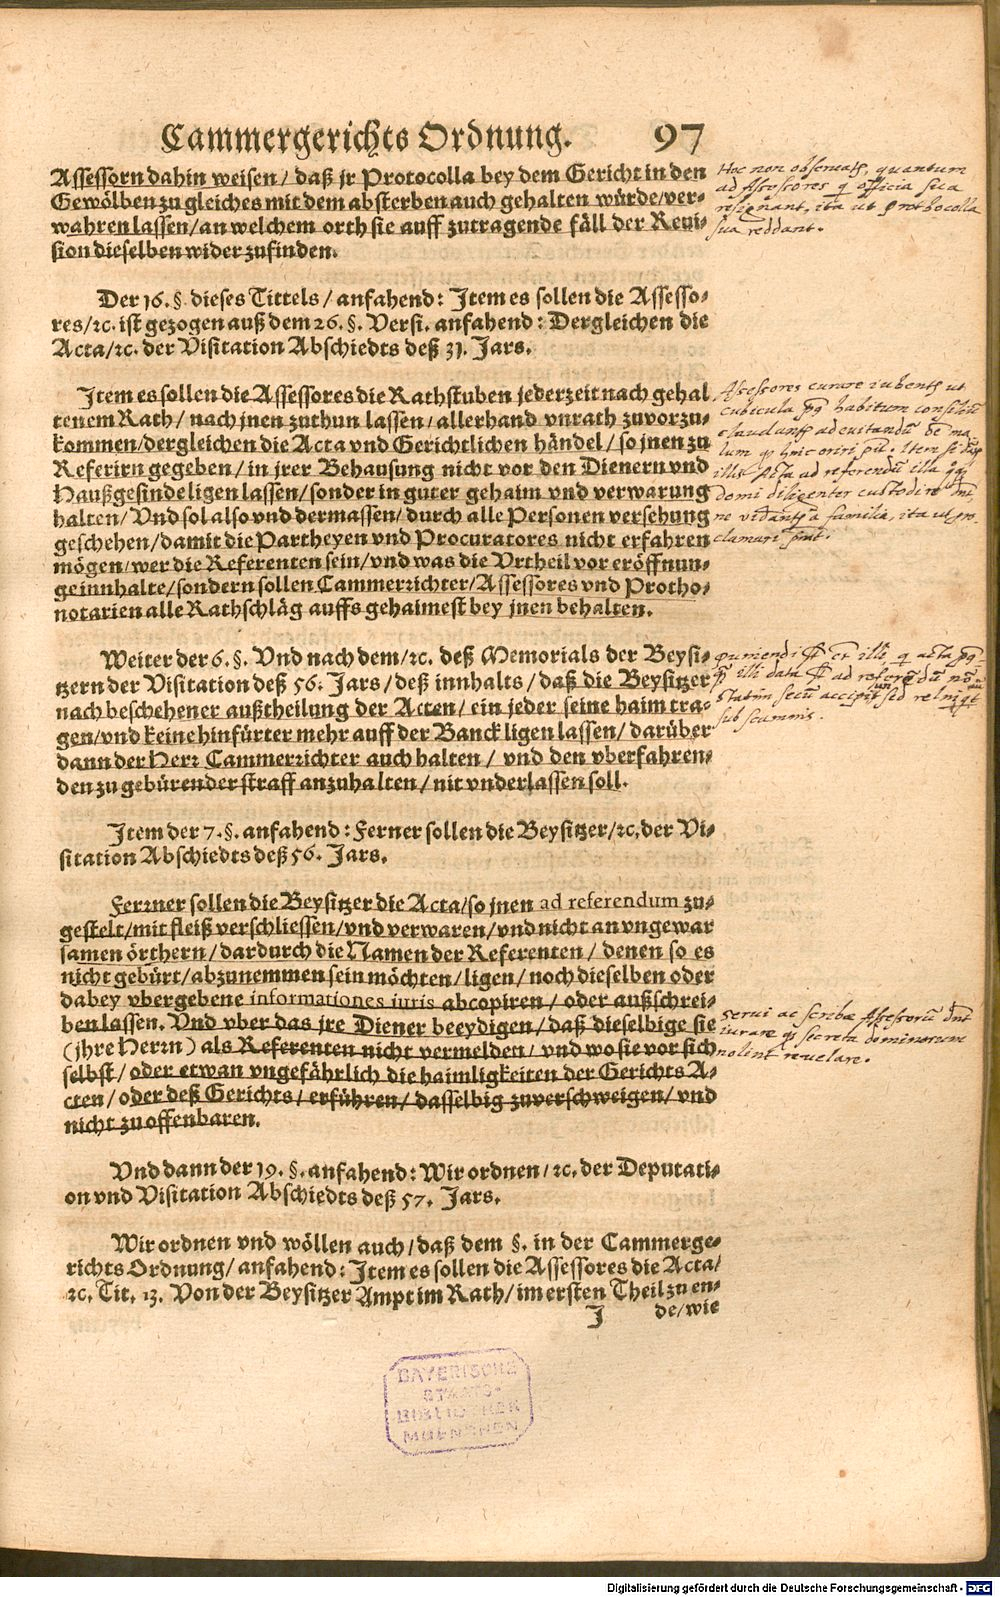 Cammergerichts Ordnung. 97
Assessorn dahin weisen / daß jr Protocolla bey dem Gericht in den
Gewölben zu gleiches mit dem absterben auch gehalten würde / ver-
wahren lassen / an welchem orth sie auff zutragende fäll der Revi-
sion dieselben wider zufinden.
Hoc non observatur, quantum
ad Assessores q officia sua
resignant, ita ut prothocolla
sua reddant.
Der 16. §. dieses Tittels / anfahend: Item es sollen die Assesso-
res / ꝛc. ist gezogen auß dem 26. §. Versi. anfahend: Dergleichen die
Acta / ꝛc. der Visitation Abschiedts deß 31. Jars.
Item es sollen die Assessores die Rathstuben jederzeit nach gehal
tenem Rath / nach jnen zuthun lassen / allerhand vnrath zuvorzu-
kommen / dergleichen die Acta vnd Gerichtlichen händel / so jnen zu
Referirn gegeben / in jrer Behausung nicht vor den Dienern vnd
Haußgesinde ligen lassen / sonder in guter gehaim vnd verwarung
halten / Vnd sol also vnd dermassen / durch alle Personen versehung
geschehen / damit die Partheyen vnd Procuratores nicht erfahren
mögen / wer die Referenten sein / vnd was die Vrtheil vor eröffnun-
ge innhalte / sondern sollen Cammerrichter / Assessores vnd Protho-
notarien alle Rathschläg auffs gehaimest bey jnen behalten.
Assessores curare iubentur ut
cubicula habitum consiliū
claudantur ad evitandū
lum hinc oriri Item si
illis Acta ad referendū illa
domi diligenter custodire
ne videantur a familia, ita ut pro-
clamari
Weiter der 6. §. Vnd nach dem / ꝛc. deß Memorials der Beysi-
tzern der Visitation deß 56. Jars / deß innhalts / daß die Beysitzer
nach beschehener außtheilung der Acten / ein jeder seine haim tra-
gen / vnd keine hinfürter mehr auff der Banck ligen lassen / darüber
dann der Herr Cammerrichter auch halten / vnd den vberfahren-
den zu gebürender straff anzuhalten / nit vnderlassen soll.
puniendi et illi q acta
illi data ad referēdū nō
statim secū accipiūt sed
sub scamnis.
Item der 7. §. anfahend: Ferner sollen die Beysitzer / ꝛc. der Vi-
sitation Abschiedts deß 56. Jars.
Ferrner sollen die Beysitzer die Acta / so jnen ad referendum zu-
gestelt / mit fleiß verschliessen / vnd verwaren / vnd nicht an vngewar
samen örthern / dardurch die Namen der Referenten / denen so es
nicht gebürt / abzunemmen sein möchten / ligen / noch dieselben oder
dabey vbergebene informationes iuris abcopiren / oder außschrei-
ben lassen. Vnd vber das jre Diener beeydigen / daß dieselbige sie
(jhre Herrn) als Referenten nicht vermelden / vnd wo sie vor sich
selbst / oder etwan vngefährlich die haimligkeiten der Gerichts A-
cten / oder deß Gerichts / erführen / dasselbig zuverschweigen / vnd
nicht zu offenbaren.
Servi ac scribæ Assessorū
iurare secreta dominorum
nolint revelare.
Vnd dann der 19. §. anfahend: Wir ordnen / ꝛc. der Deputati-
on vnd Visitation Abschiedts deß 57. Jars.
Wir ordnen vnd wöllen auch / daß dem §. in der Cammerge-
richts Ordnung / anfahend: Item es sollen die Assessores die Acta /
ꝛc. Tit. 13. Von der Beysitzer Ampt im Rath / im ersten Theil zu en-
J de / wie
BAYERISCHE
STAATS-
BIBLIOTHEK
MUENCHEN
Digitalisierung gefördert durch die Deutsche Forschungsgemeinschaft - DFG